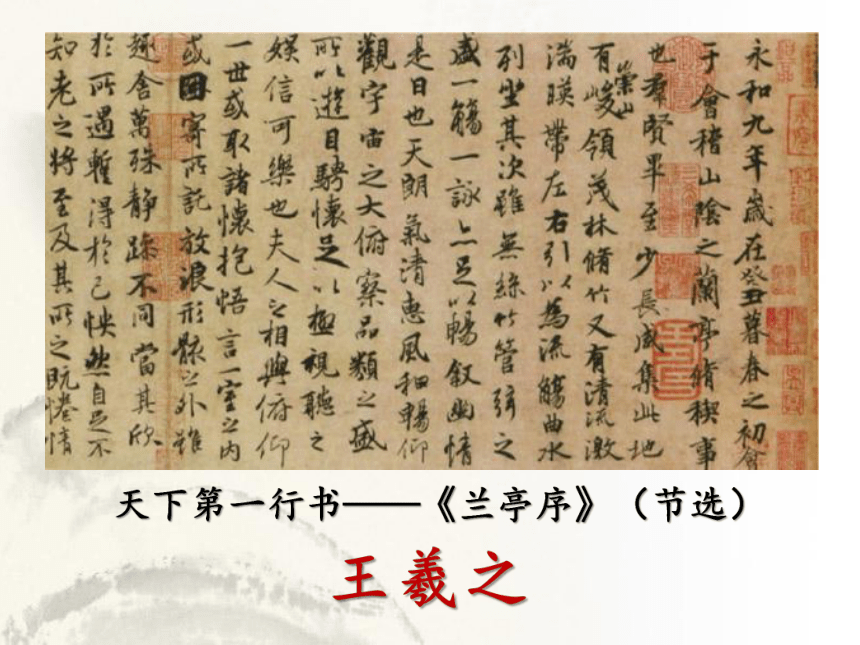 永和九年歲在癸丑暮春之初會
于會稽山陰之蘭亭脩稧事
也羣賢畢至少長咸集此地
有崇山峻領茂林脩竹又有清流激
湍暎帶左右引以為流觴曲水
列坐其次雖無絲竹管弦之
盛一觴一詠亦足以暢敘幽情
是日也天朗氣清惠風和暢仰
觀宇宙之大俯察品類之盛
所以遊目騁懷足以極視聽之
娛信可樂也夫人之相與俯仰
一世或取諸懷抱悟言一室之內
或因寄所託放浪形骸之外雖
趣舍萬殊靜躁不同當其欣
於所遇暫得於己怏然自足不
知老之將至及其所之既惓情
天下第一行书——《兰亭序》（节选）
王羲之